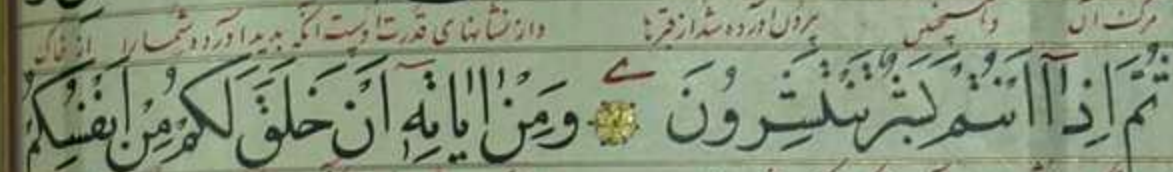 مرگ آن واینچنین برون آورده شد از قبرها واز نشانهای قدرت اوست آنکه پدید آورد شما را از خاک
ثُمَّ اِذَآ اَنْتُمْ بَشَرٌ تَنْتَشِرُونَ وَمِنْ اٰيَاتِهٖٓ اَنْ خَلَقَ لَكُمْ مِنْ اَنْفُسِكُمْ